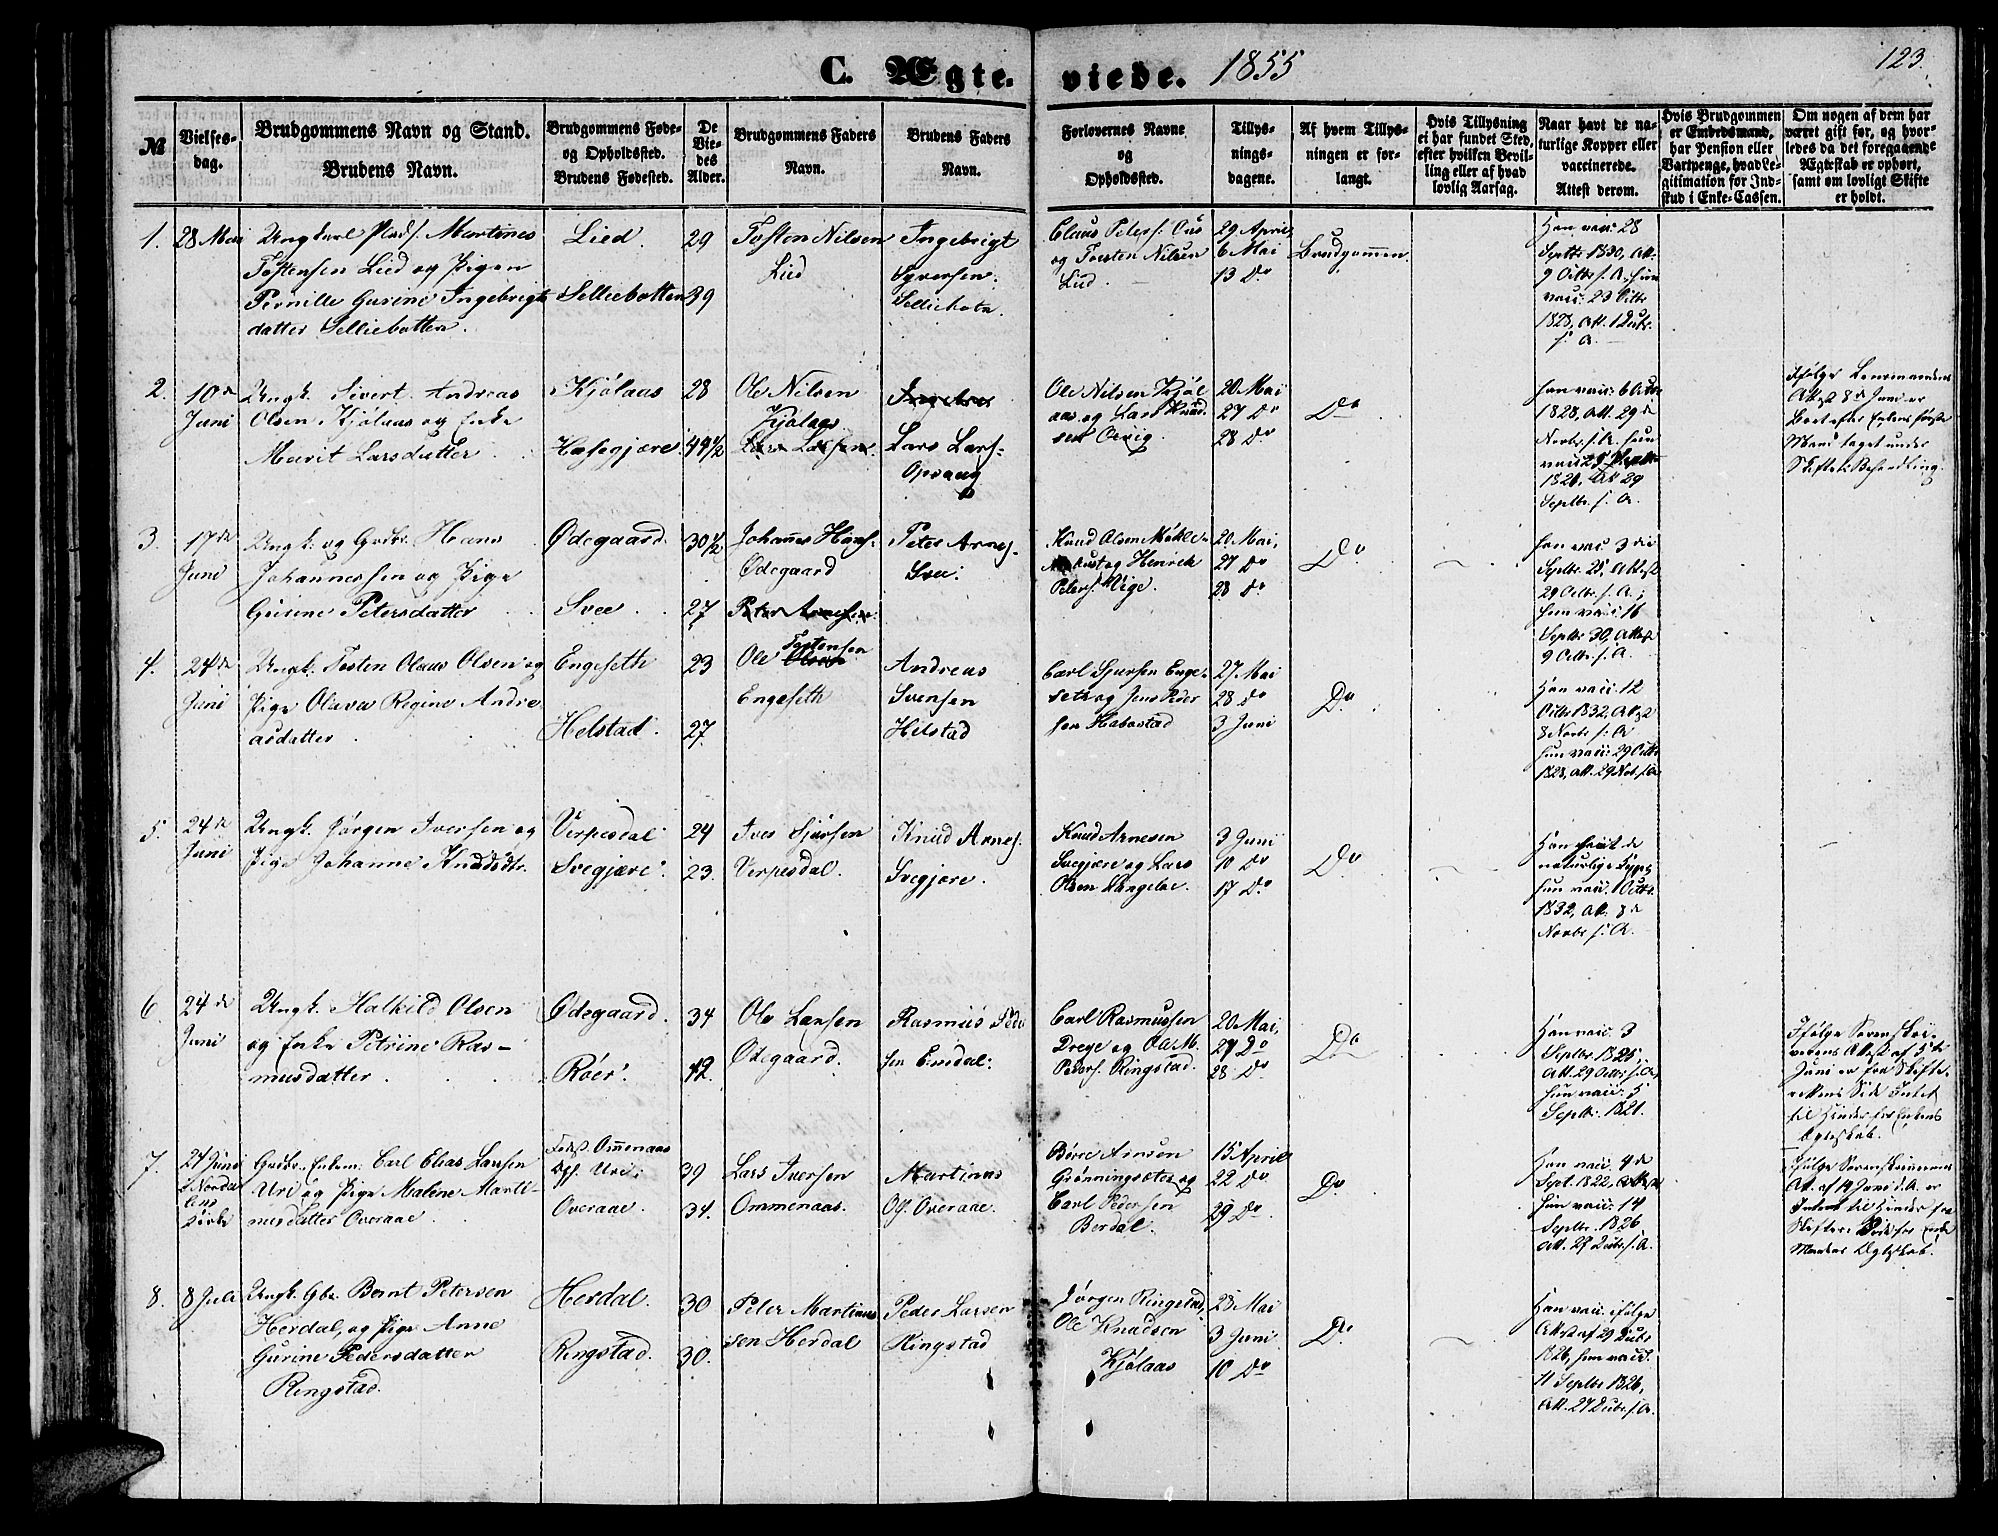 C. Ægte- viede. 1855
123.
№
Vielses-
dag.
Brudgommens Navn og Stand.
Brudens Navn.
Brudgommens Føde-
og Opholdssted.
Brudens Fødested.
De
Vie-
des
Alder.
Brudgommens Faders
Navn.
Brudens Faders
Navn.
Forlovernes Navne
og
Opholdssted.
Tillys-
nings-
dagene.
Af hvem Tillys-
ningen er for-
langt.
Hvis Tillysning
ei har fundet Sted,
efter hvilken Bevil-
ling eller af hvad
lovlig Aarsag.
Naar havt de na-
turlige Kopper eller
vaccinerede.
Attest derom.
Hvis Brudgommen
er Embedsmand,
har Pension eller
Vartpenge, hvad Le-
gitimation for Ind-
skud i Enke-Cassen.
Om nogen af dem har
været gift før, og hvor-
ledes da det foregaaende
Ægteskab er ophørt,
samt om lovligt Skifte
er holdt.
1.
28 Mai
Ungkarl Pladf. Martines
Tostensen Lied og Pigen
Pernille Gurine Ingebrigts
datter Selliebotten.
Lied.
Selliebotten
29
39
Tosten Nilsen
Lied
Ingebrigt
Syversen
Selliebotn.
Claus Peters: Ous
og Torsten Nilsen
Lied.
29 April
6 Mai
13 Do
Brudgommen
Han vacc: 28
Septbr 1830, Att.
9 Octbr s. A. hun
vacc: 23 Octbr
1828, Att. 1 Decbr.
s. A.
2.
10de
Juni
Ungk. Sivert Andreas
Olsen Kjølaas og Enke
Marit Larsdatter
Kjølaas
Hasegjære
28
49 1/2
Ole Nilsen
Kjølaas
Lars Larsen
Lars Lars-
Opvaag
Ole Nilsen Kjøl
aas og Lars Knud
sen Oevig.
20 Mai
27 Do
28 Do
Do
han vacc: 6 Octbr
1828, Att. 29de
Novbr. s. A. hun
1821, Att 29
Septbr. s. A.
Ifølge Lensmandens
Attest 8de Juni er
Boet efter Enkens første
Mand taget under
Skiftets Behandling.
3.
17de
Juni
Ungk. og Gbr. Hans
Johannessen og Pige
Gurine Petersdatter
Ødegaard.
Svee
30 1/2
27
Johannes Hans-
Ødegaard
Peter Arnesen.
Peter Arnes-
Svee.
Knud Olsen Møkle-
og Henrik
Peters.
20 Mai,
27 Do
28 Do
Do
han vacc 3die
Septbr. 25, Attest
29 Octbr. s. A.;
hun vacc: 16
Septbr 30, Attest
9 Octbr. s. A.
4.
24de
Juni
Ungk. Tosten Olaus Olsen og
Pige Olava Regine Andre
asdatter
Engeseth
Helstad
23
27
Ole Tostensen
Olsen
Engeseth
Andreas
Svensen
Helstad
Carl Sjursen Enge-
seth og Jens Peder
sen Habostad
27 Mai
28 Do
3 Juni
Do
Han vacc: 12
Octbr 1832, Attest
8 Novbr s: A
hun vacc: 29 Octbr
1828, Att. 29 Nov. s. A
5.
24de
Juni
Ungk. Jørgen Iversen og
Pige Johanne Knudsdtr.
Verpesdal
Svegjære
24
23.
Iver Sjursen
Verpesdal.
Knud Arnes.
Svegjære.
Knud Arnesen
Svegjære og Lars
Olsen Langeløe.
3 Juni
10 Do
17 Do
Do
Han havt de
naturlige Kopper
hun vacc. 1 Octbr
1832, Att: 8de
Novbr s: A.
6.
24de
Juni
Ungk. Halkild Olsen
og Enke Petrine Ras-
musdatter
Ødegaard.
Røer.
34
42.
Ole Larsen
Ødegaard.
Rasmus Peder
sen Emdal.
Carl Rasmussen
Drege og Ole M.
Peders. Ringstad.
20 Mai,
27 Do
28 Do
Do
Han vacc: 3
Septbr. 1825,
Att. 29 Octbr. s. A,
hun vacc: 5
Septbr. 1821.
Ifølge Sorenskri-
verens Attest af 5te
Juni er fra Skifte-
rettens Side Intet
til Hinder for Enkens
Ægteskab.
7.
24 Juni
i Nordda
lens
Kirke
Gbr. Enkem. Carl Elias Larsen
Uri og Pige Malene Marti-
nusdatter Overaae.
Fødst. Ommenaas
Opf. Uri.
Overaae.
39
34.
Lars Iversen
Ommenaas.
Martinus
Ol. Overaae.
Børre Ainsen
Grønningsæter og
Carl Pedersen
Berdal.
15 April
22 Do
29 Do
Do
Han vacc: 4de
Sept. 1822, Attest
hun vacc: 14
Septbr. 1826
Att. 27 Decbr. s. A.
Ifølge Sorenskriverens
Att. af 19 Juni d. A. er
Intet til Hinder fra
Skiftets Side for Enke
Mandens Ægteskab.
8.
8 Juli
Ungk. Gbr. Bernt Petersen
Herdal, og Pige Anne
Gurine Pedersdatter
Ringstad.
Herdal.
Ringstad.
30
30.
Peter Martinus
sen Herdal
Peder Larsen
Ringstad
Jørgen Ringstad,
Ole Knudsen
Kjølaas
28 Mai
3 Juni
10 Do
Do
Han vacc. ifølge
Attest af 29 Decbr
1826, hun vacc.
11 Septbr 1826,
Att. 27 Decbr. s. A.